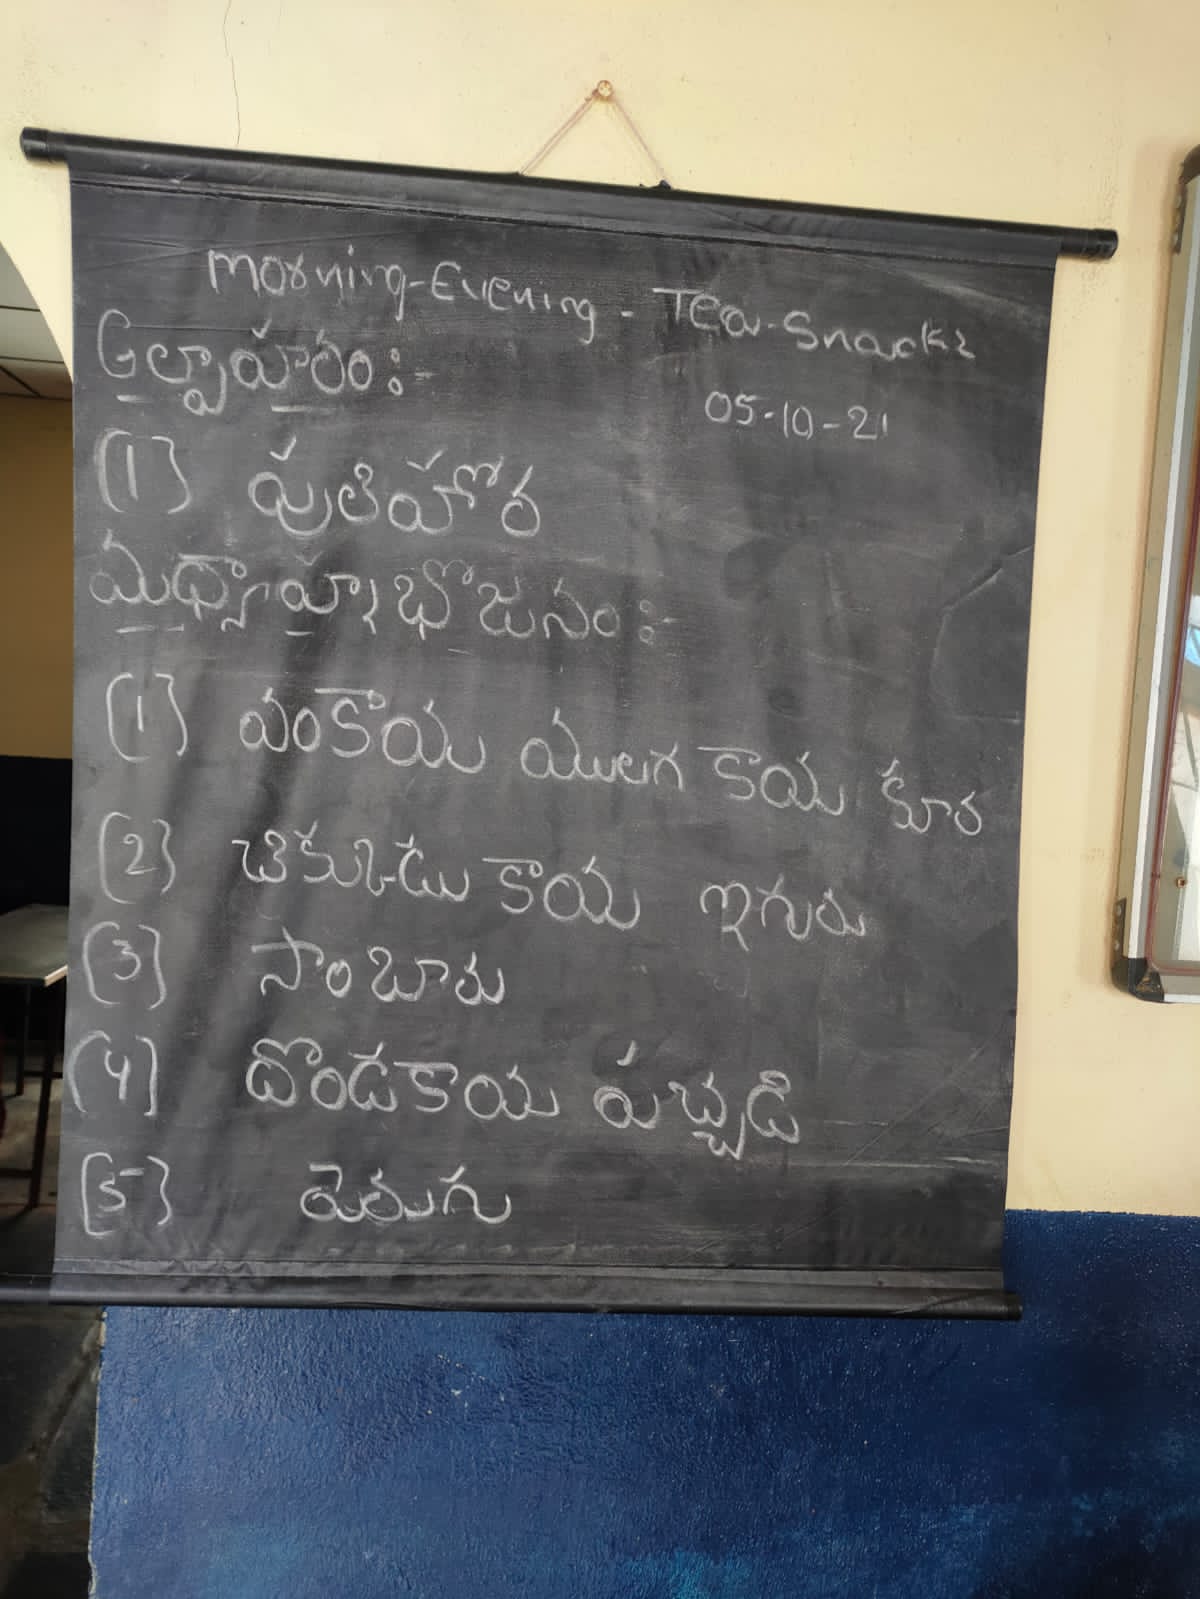 Morning-Evening - Tea-Snacks
అల్పాహారం:-
05-10-21
(1) పులిహోర
మధ్యాహ్న భోజనం:-
(1) వంకాయ ములగ కాయ కూర
(2) చిక్కుడు కాయ ఇగురు
(3) సాంబారు
(4) దొండకాయ పచ్చడి
(5) పెరుగు